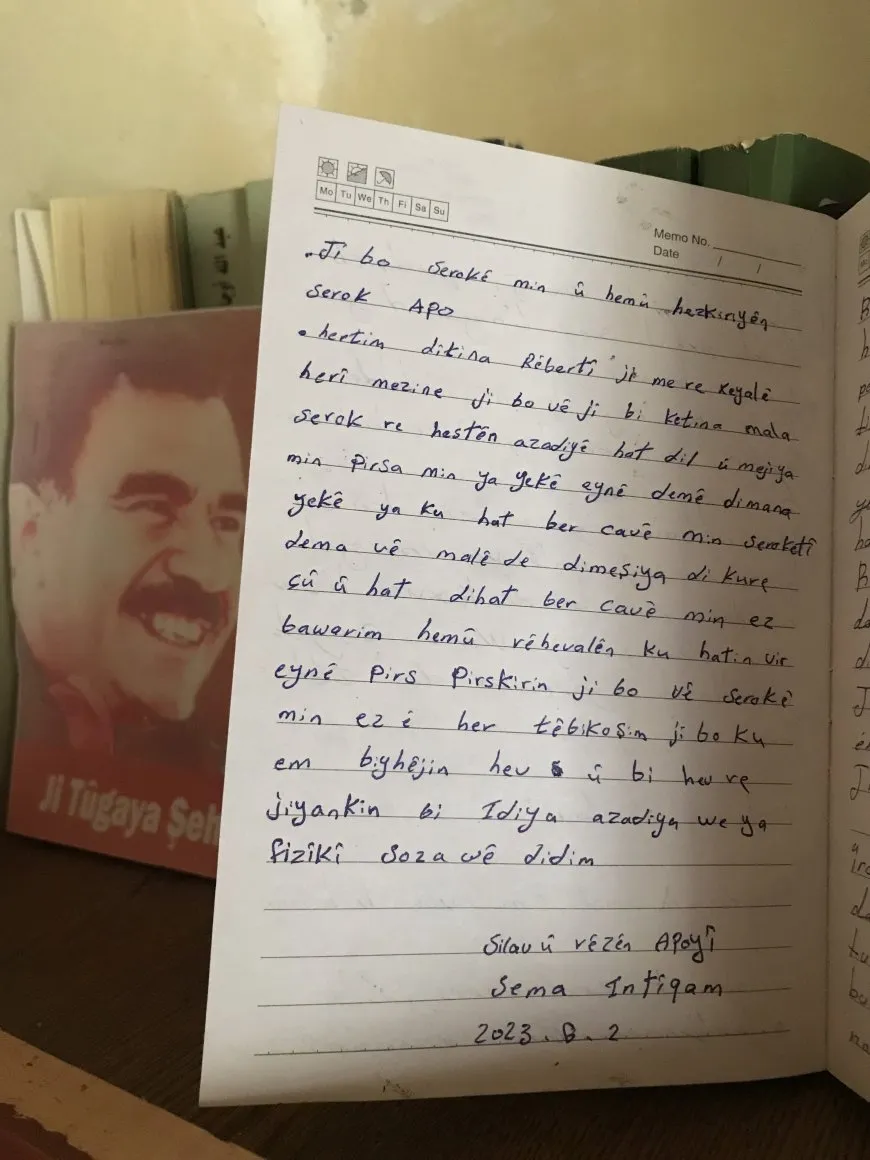 Mo Tu We Th Fi Sa Su
Memo No.
Date / /
Ji bo serokê min û hemû hezkiriyên
serok APO
• hertim dîtina Rêbertî ji me re xeyalê
herî mezine ji bo vê ji bi ketina mala
serok re hestên azadiyê hat dil û mejiya
min pirsa min ya yekê eynê demê dimana
yekê ya ku hat ber cavê min seroketî
dema vê malê de dimeşiya di kure
çû û hat dihat ber cavê min ez
bawarim hemû rêhevalên ku hatin vir
eynê pirs pirskirin ji bo vê serokê
min ez ê her têbikoşim ji bo ku
em bighêjin hev û bi hev re
jiyankin bi Idiya azadiya we ya
fizîkî soza wê didim
Silav û rêzên APOyî
Sema Intîqam
2023.6.2
Ji Tûgaya Şeh